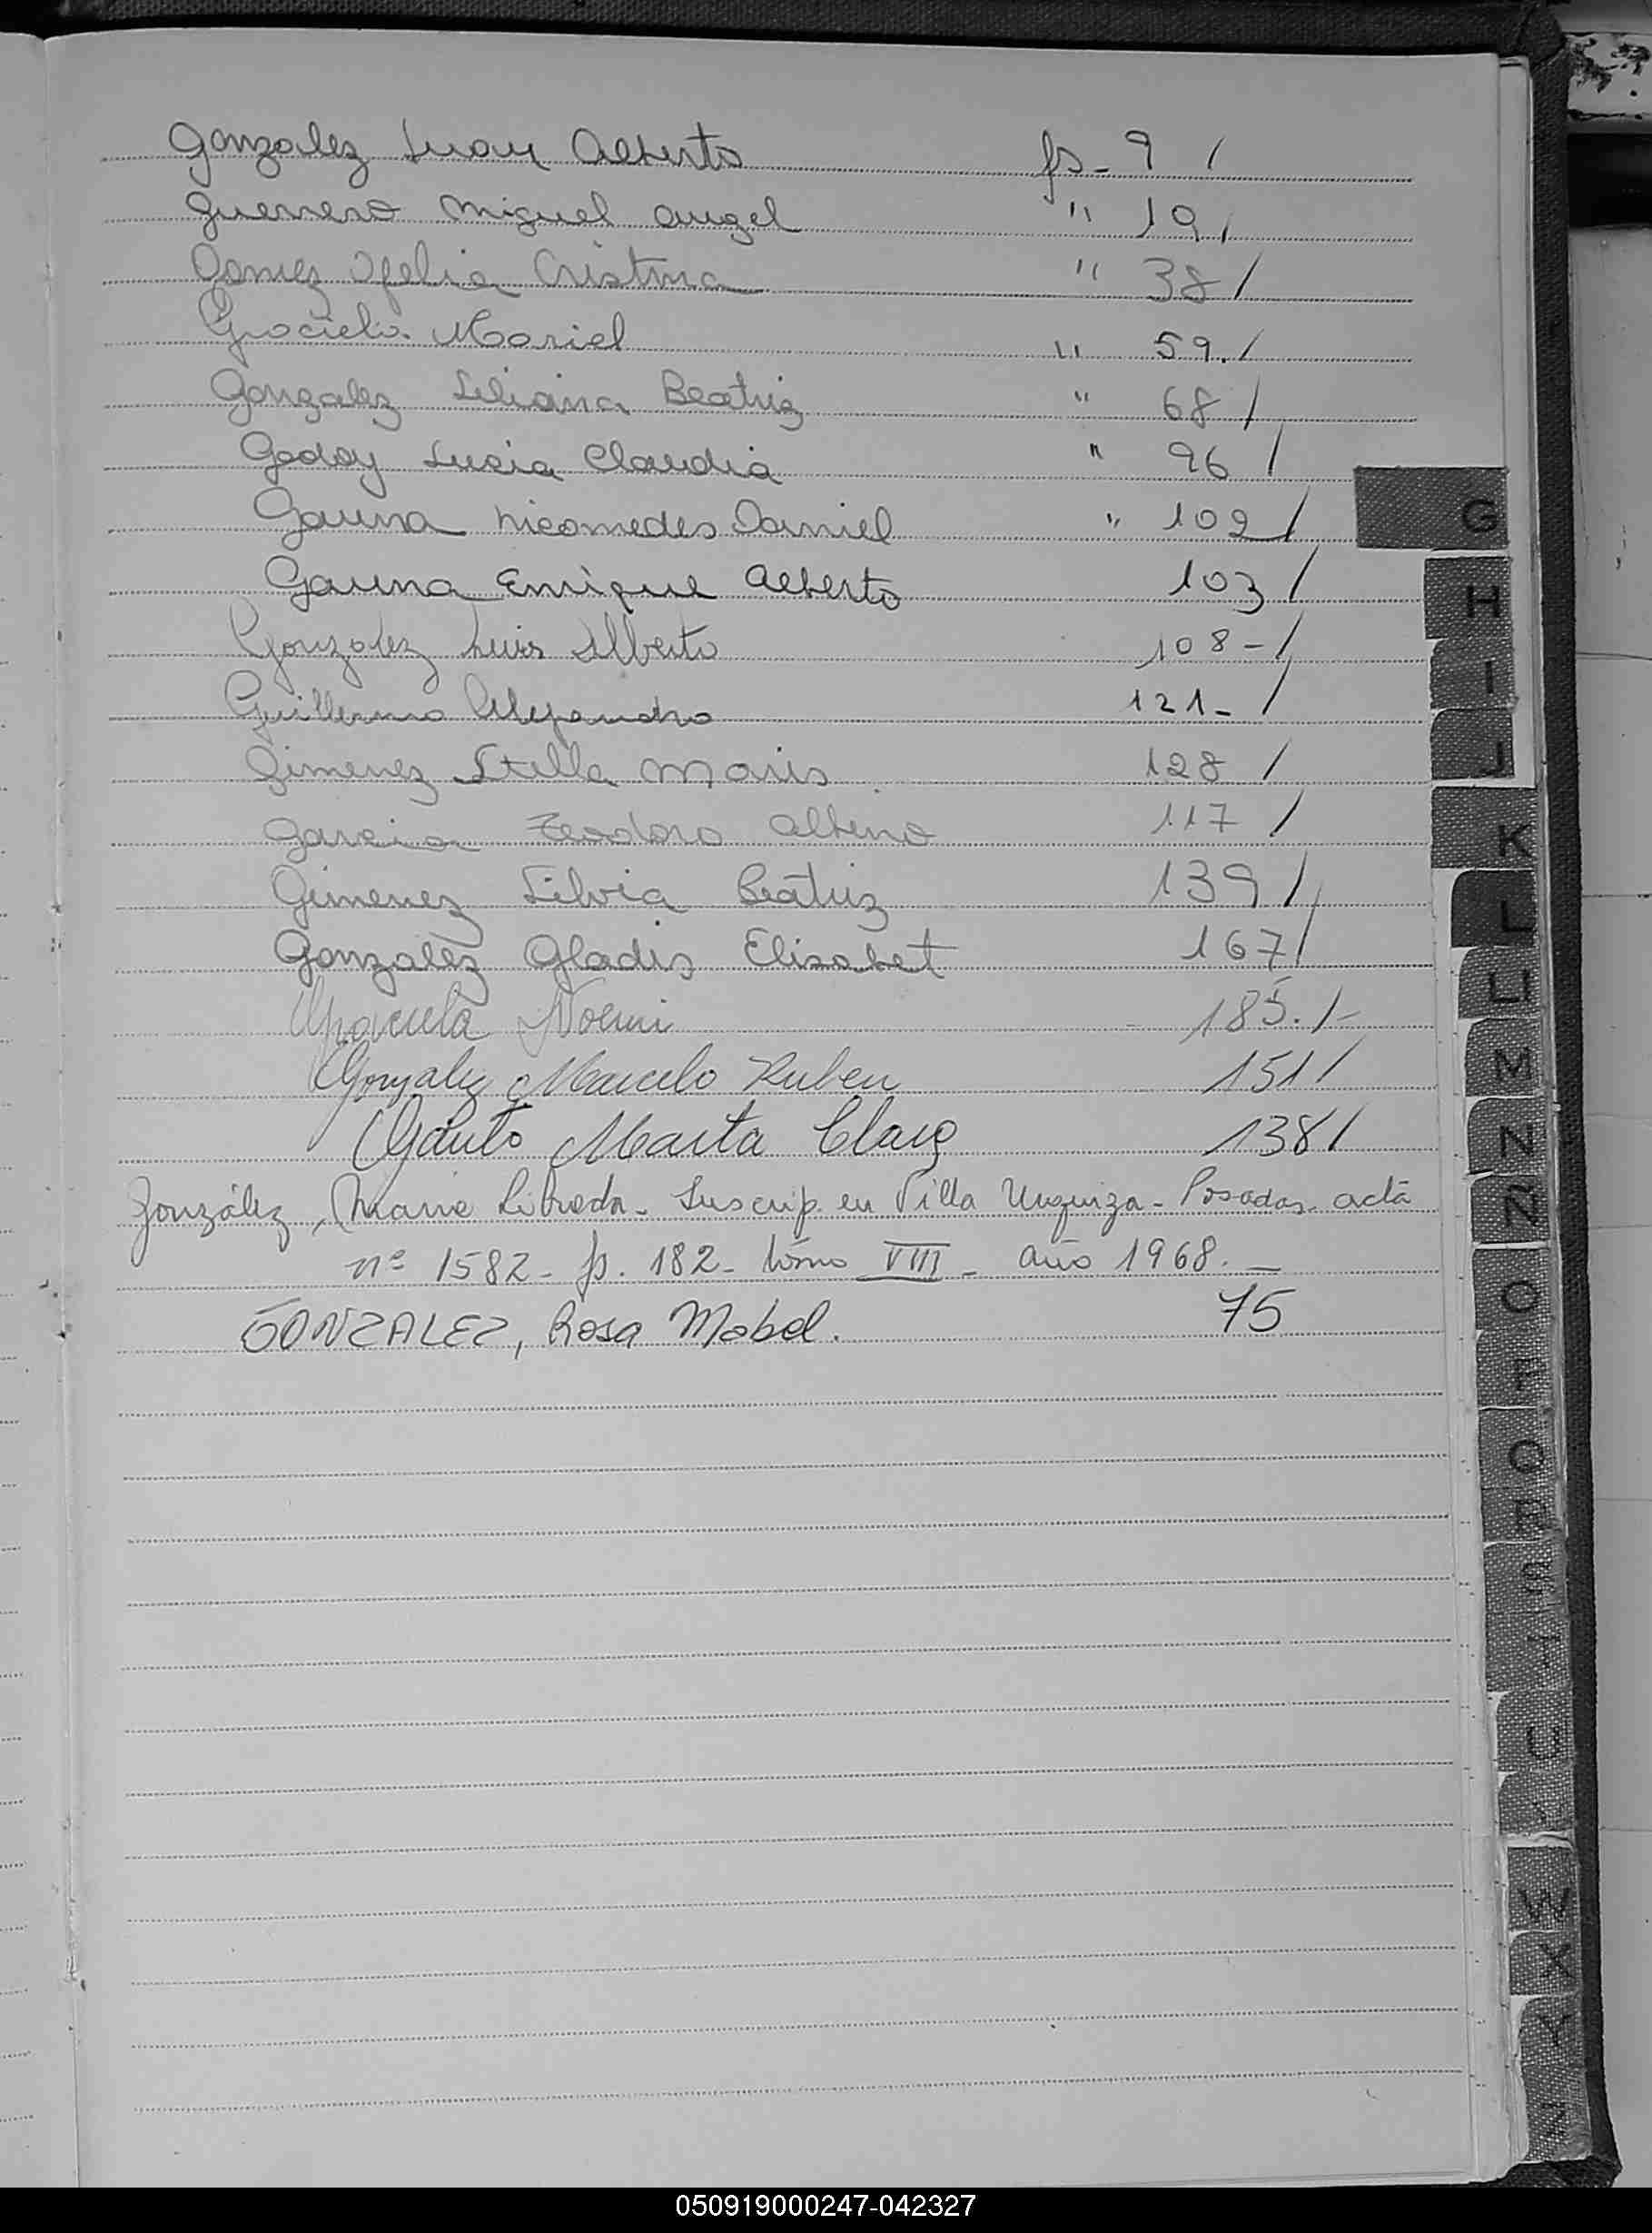 Gonzalez Juan Alberto fs- 9 /
Guerrero Miguel Angel " 19 /
Gomez Ofelia Cristina " 38 /
Graciela Mariel " 59. /
Gonzalez Liliana Beatriz " 68 /
Godoy Lucia Claudia " 96 /
Gauna Nicomedes Daniel " 102 /
Gauna Enrique Alberto 103 /
Gonzalez Luis Alberto 108 - /
Guillermo Alejandro 121- /
Gimenez Stella Maris 128 /
Garcia Teodoro Albino 117 /
Gimenez Silvia Beatriz 139 /
Gonzalez Gladis Elisabet 167 /
Graciela Noemi 185. /-
Gonzalez Marcelo Ruben 151 /
Gauto Marta Clara 138 /
González, Maria Librada - Inscrip. en Villa Urquiza - Posadas - acta
nº 1582 - fs. 182 - tomo VIII - año 1968. -
GONZALEZ, Rosa Mabel. 75
G
H
I
J
K
L
LL
M
N
Ñ
O
P
Q
R
S
T
U
V
W
X
Y
Z
050919000247-042327